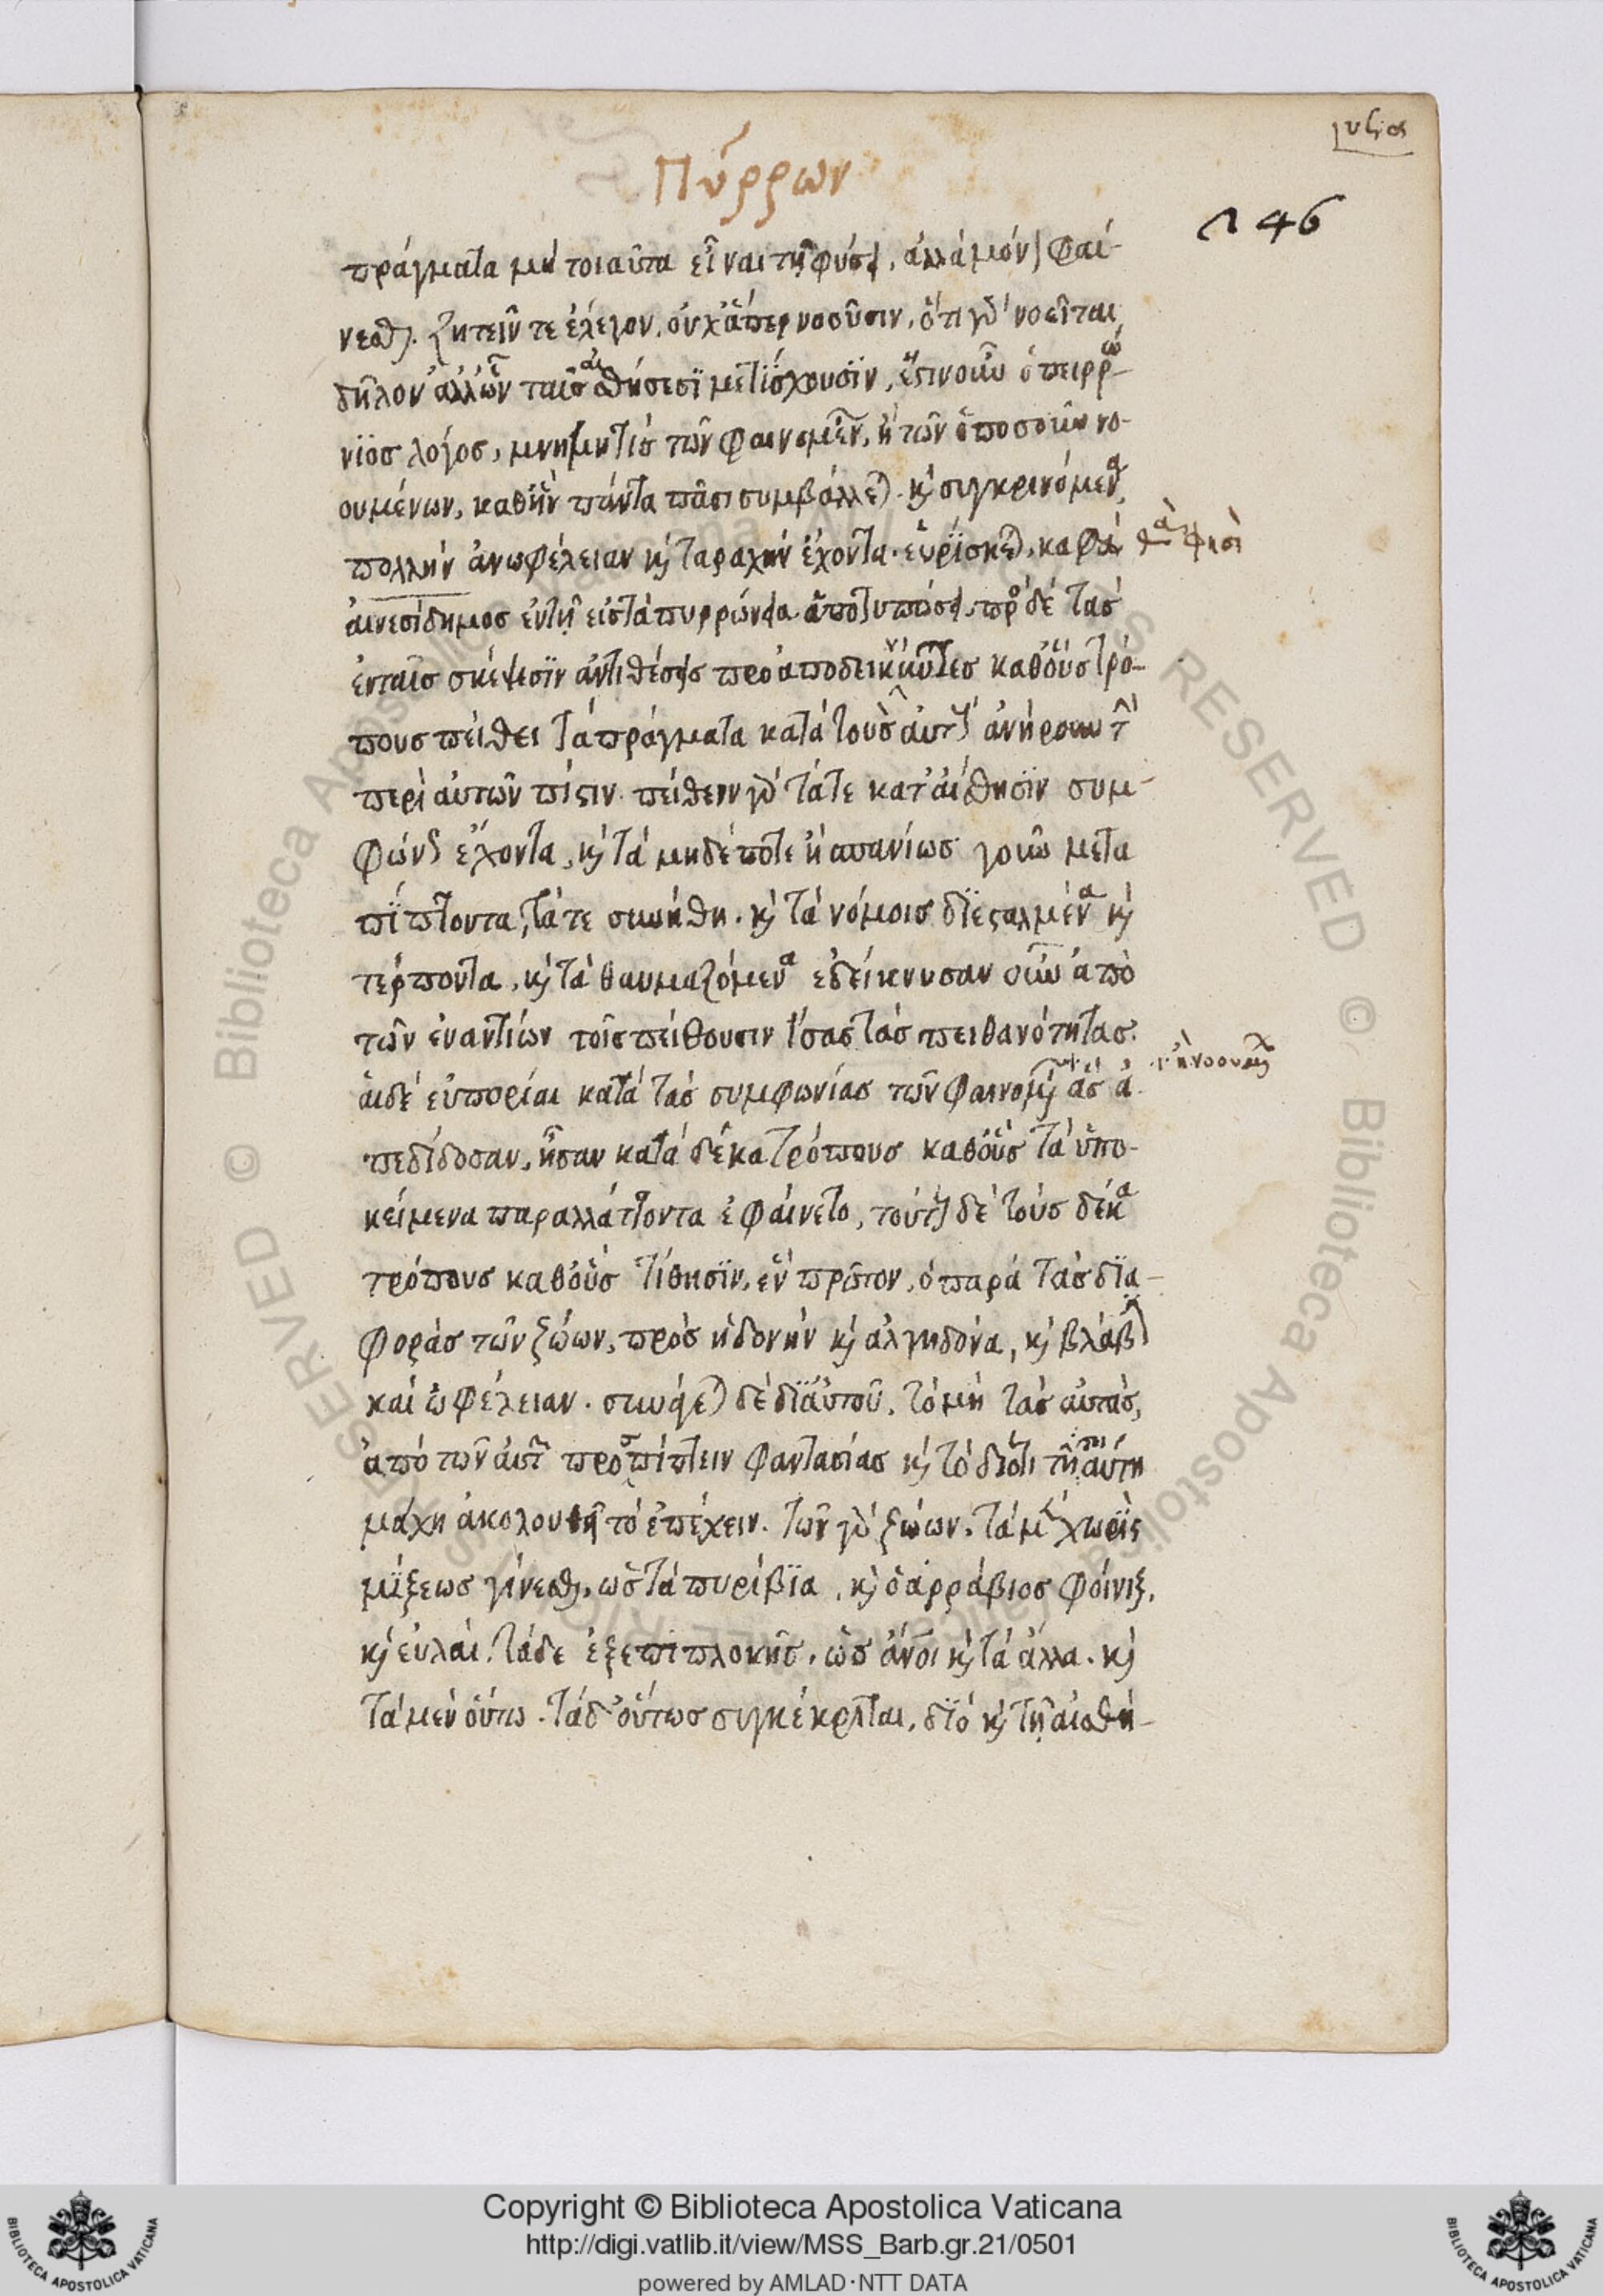 Πύρρων
246
πράγματα μὴ τοιαῦτα εἶναι τῇ φύσει, ἀλλὰ μόνον φαί-
νεσθαι. ζητεῖν τε ἔλεγον, οὐχ ἅπερ νοοῦσιν, ὅτι γὰρ νοεῖται
δῆλον ἀλλ' ὧν ταῖς αἰσθήσεσϊ μετΐσχουσϊν, ἔστιν οὖν ὁ πειρρω-
νϊος λόγος, μνημη τις τῶν φαινομένων, ἢ τῶν ὁποσοῦν νο-
ουμένων, καθ' ἣν πάντα πᾶσι συμβάλλεται καὶ συγκρινόμενα
πολλὴν ἀνωφέλειαν καὶ ταραχὴν ἔχοντα εὑρΐσκεται, καθά φησὶ
αἰνεσίδημος ἐν τῇ εἰς τὰ πυρρώνεια ὑποτυπώσει, πρὸς δὲ τὰς
ἐν ταῖς σκέψεσϊν ἀντιθέσεις προαποδεικνύντες καθ' οὓς τρό-
πους πείθει τὰ πράγματα κατὰ τοὺς αὐτοὺς ἀνήρουν τὴν
περὶ αὐτῶν πίστιν πείθειν γὰρ τά τε κατ' αἴσθησϊν συμ-
φώνως ἔχοντα, καὶ τὰ μηδέποτε ἢ σπανίως γοῦν μετα
πΐπτοντα, τά τε συνήθη. καὶ τὰ νόμοις δϊεσταλμένα καὶ
τέρποντα, καὶ τὰ θαυμαζόμενα ἐδείκνυσαν οὖν ἀπὸ
τῶν ἐναντίων τοῖς πείθουσιν ἴσας τὰς πειθανότητας.
αἱ δὲ εὐπορίαι κατὰ τὰς συμφωνίας τῶν φαινομένων ἃς ἀ
πεδίδοσαν, ἦσαν κατὰ δέκα τρόπους καθ' οὓς τὰ ὑπο-
κείμενα παραλλάττοντα ἐφαίνετο, τούτους δὲ τοὺς δέκα
τρόπους καθ' οὓς τίθησϊν, εἷν πρῶτον, ὁ παρὰ τὰς δϊα-
φορὰς τῶν ζώων, πρὸς ἡδονὴν καὶ ἀλγηδόνα, καὶ βλάβην
καὶ ὠφέλειαν. συνάγεται δὲ δϊ' αὐτοῦ, τὸ μὴ τὰς αὐτὰς,
ἀπὸ τῶν αὐτῶν προσπίπτειν φαντασίας καὶ τὸ διότι τῇ τοιαύτῃ
μάχῃ ἀκολουθεῖ τὸ ἐπέχειν. τῶν γὰρ ζώων, τὰ μὲν χωρὶς
μΐξεως γίνεσθαι, ὡς τὰ πυρίβϊα, καὶ ὁ ἀρράβιος φοίνιξ,
καὶ εὐλαί, τὰ δε ἐξ ἐπιπλοκῆς, ὡς ἄνθρωποι καὶ τὰ ἄλλα. καὶ
τὰ μὲν οὕτω. τὰ δ' οὕτως συγκέκρϊται, δϊὸ καὶ τῇ αἰσθή-
ἢ νοουμένων
Copyright © Biblioteca Apostolica Vaticana
http://digi.vatlib.it/view/MSS_Barb.gr.21/0501
powered by AMLAD·NTT DATA